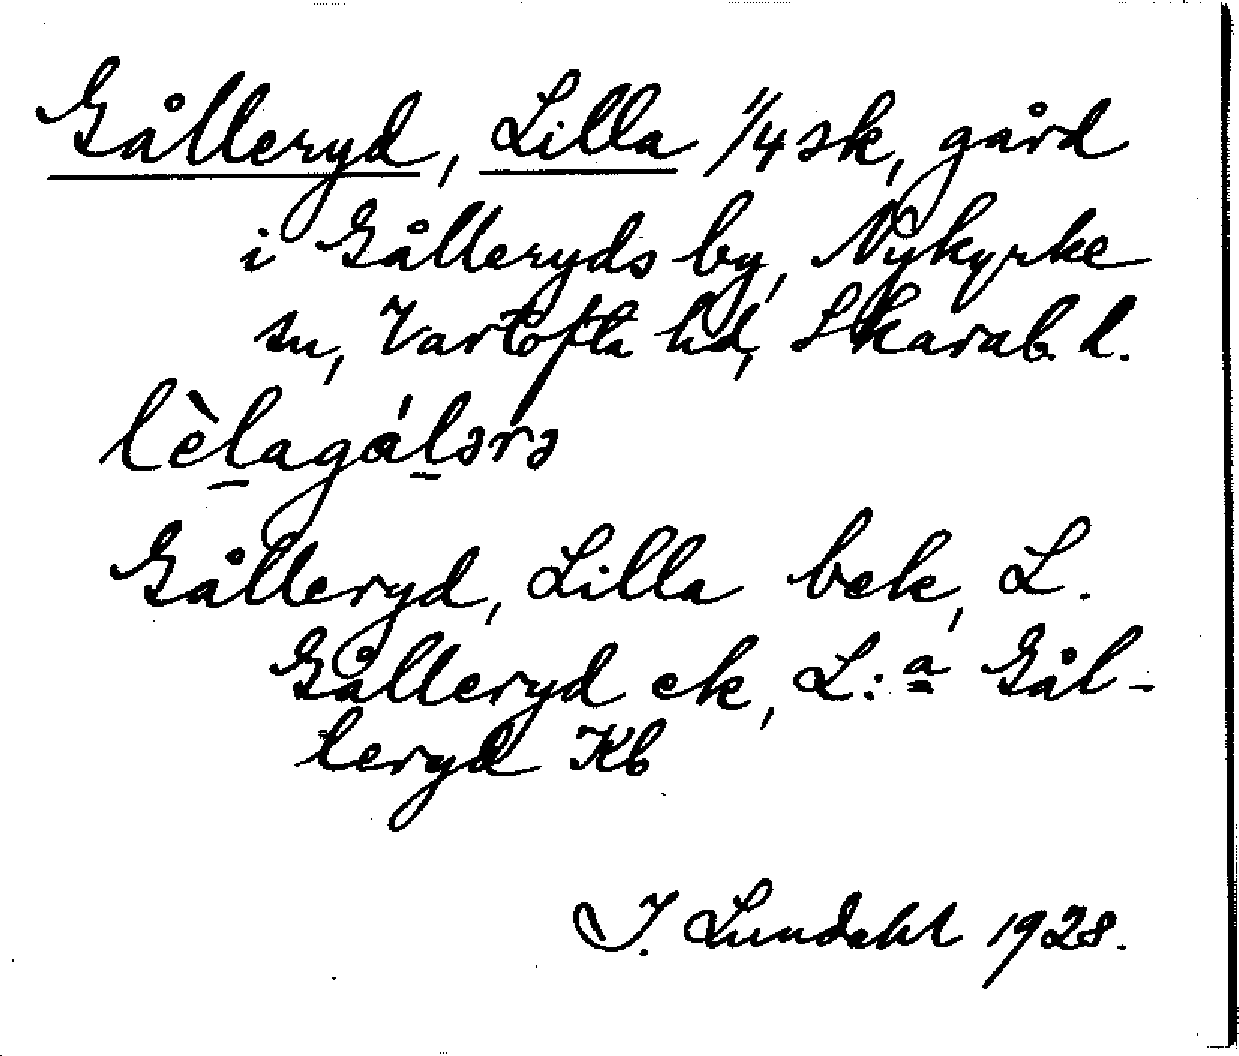 Gålleryd, Lilla 1/4 sk, gård
i Gålleryds by, Nykyrke
sn, Vartofta hd, Skarab. l.
lèlagálərə
Gålleryd, Lilla bek, L.
Gålleryd ek, L:a Gål-
leryd Kb
I. Lundahl 1928.